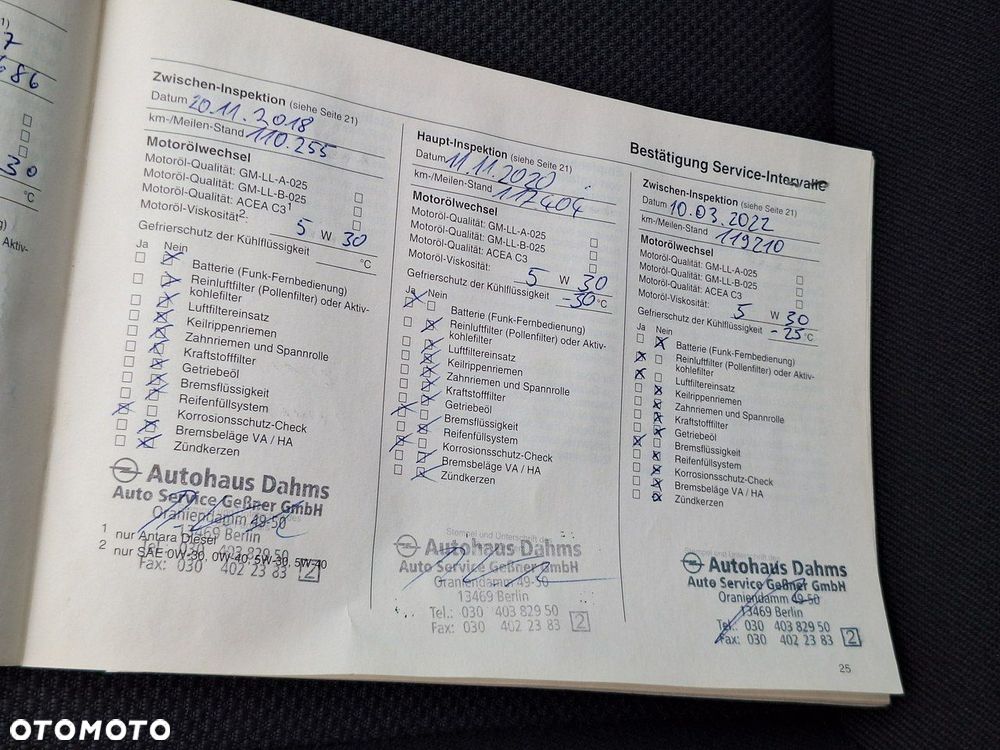 1)
7
686
30
°C
Aktiv-
Zwischen-Inspektion (siehe Seite 21)
Datum 20.11.2018
km-/Meilen-Stand 110.255
Motorölwechsel
Motoröl-Qualität: GM-LL-A-025
Motoröl-Qualität: GM-LL-B-025
Motoröl-Qualität: ACEA C3¹
Motoröl-Viskosität²: 5 W 30
Gefrierschutz der Kühlflüssigkeit °C
Ja Nein
Batterie (Funk-Fernbedienung)
Reinluftfilter (Pollenfilter) oder Aktiv-
kohlefilter
Luftfiltereinsatz
Keilrippenriemen
Zahnriemen und Spannrolle
Kraftstofffilter
Getriebeöl
Bremsflüssigkeit
Reifenfüllsystem
Korrosionsschutz-Check
Bremsbeläge VA / HA
Zündkerzen
Autohaus Dahms
Auto Service Geßner GmbH
Oraniendamm 49-50
13469 Berlin
Tel.: 030 403 829 50
Fax: 030 402 23 83 2
1 nur Antara Diesel
2 nur SAE 0W-30, 0W-40, 5W-30, 5W-40
Haupt-Inspektion (siehe Seite 21)
Datum 11.11.2020
km-/Meilen-Stand 117404
Motorölwechsel
Motoröl-Qualität: GM-LL-A-025
Motoröl-Qualität: GM-LL-B-025
Motoröl-Qualität: ACEA C3
Motoröl-Viskosität: 5 W 30
Gefrierschutz der Kühlflüssigkeit -30 °C
Ja Nein
Batterie (Funk-Fernbedienung)
Reinluftfilter (Pollenfilter) oder Aktiv-
kohlefilter
Luftfiltereinsatz
Keilrippenriemen
Zahnriemen und Spannrolle
Kraftstofffilter
Getriebeöl
Bremsflüssigkeit
Reifenfüllsystem
Korrosionsschutz-Check
Bremsbeläge VA / HA
Zündkerzen
Stempel und Unterschrift des
Autohaus Dahms
Auto Service Geßner GmbH
Oraniendamm 49-50
13469 Berlin
Tel.: 030 403 829 50
Fax: 030 402 23 83 2
Bestätigung Service-Intervalle
Zwischen-Inspektion (siehe Seite 21)
Datum 10.03.2022
km-/Meilen-Stand 119210
Motorölwechsel
Motoröl-Qualität: GM-LL-A-025
Motoröl-Qualität: GM-LL-B-025
Motoröl-Qualität: ACEA C3
Motoröl-Viskosität: 5 W 30
Gefrierschutz der Kühlflüssigkeit -25 °C
Ja Nein
Batterie (Funk-Fernbedienung)
Reinluftfilter (Pollenfilter) oder Aktiv-
kohlefilter
Luftfiltereinsatz
Keilrippenriemen
Zahnriemen und Spannrolle
Kraftstofffilter
Getriebeöl
Bremsflüssigkeit
Reifenfüllsystem
Korrosionsschutz-Check
Bremsbeläge VA / HA
Zündkerzen
Stempel und Unterschrift des
Autohaus Dahms
Auto Service Geßner GmbH
Oraniendamm 49-50
13469 Berlin
Tel.: 030 403 829 50
Fax: 030 402 23 83 2
25
OTOMOTO